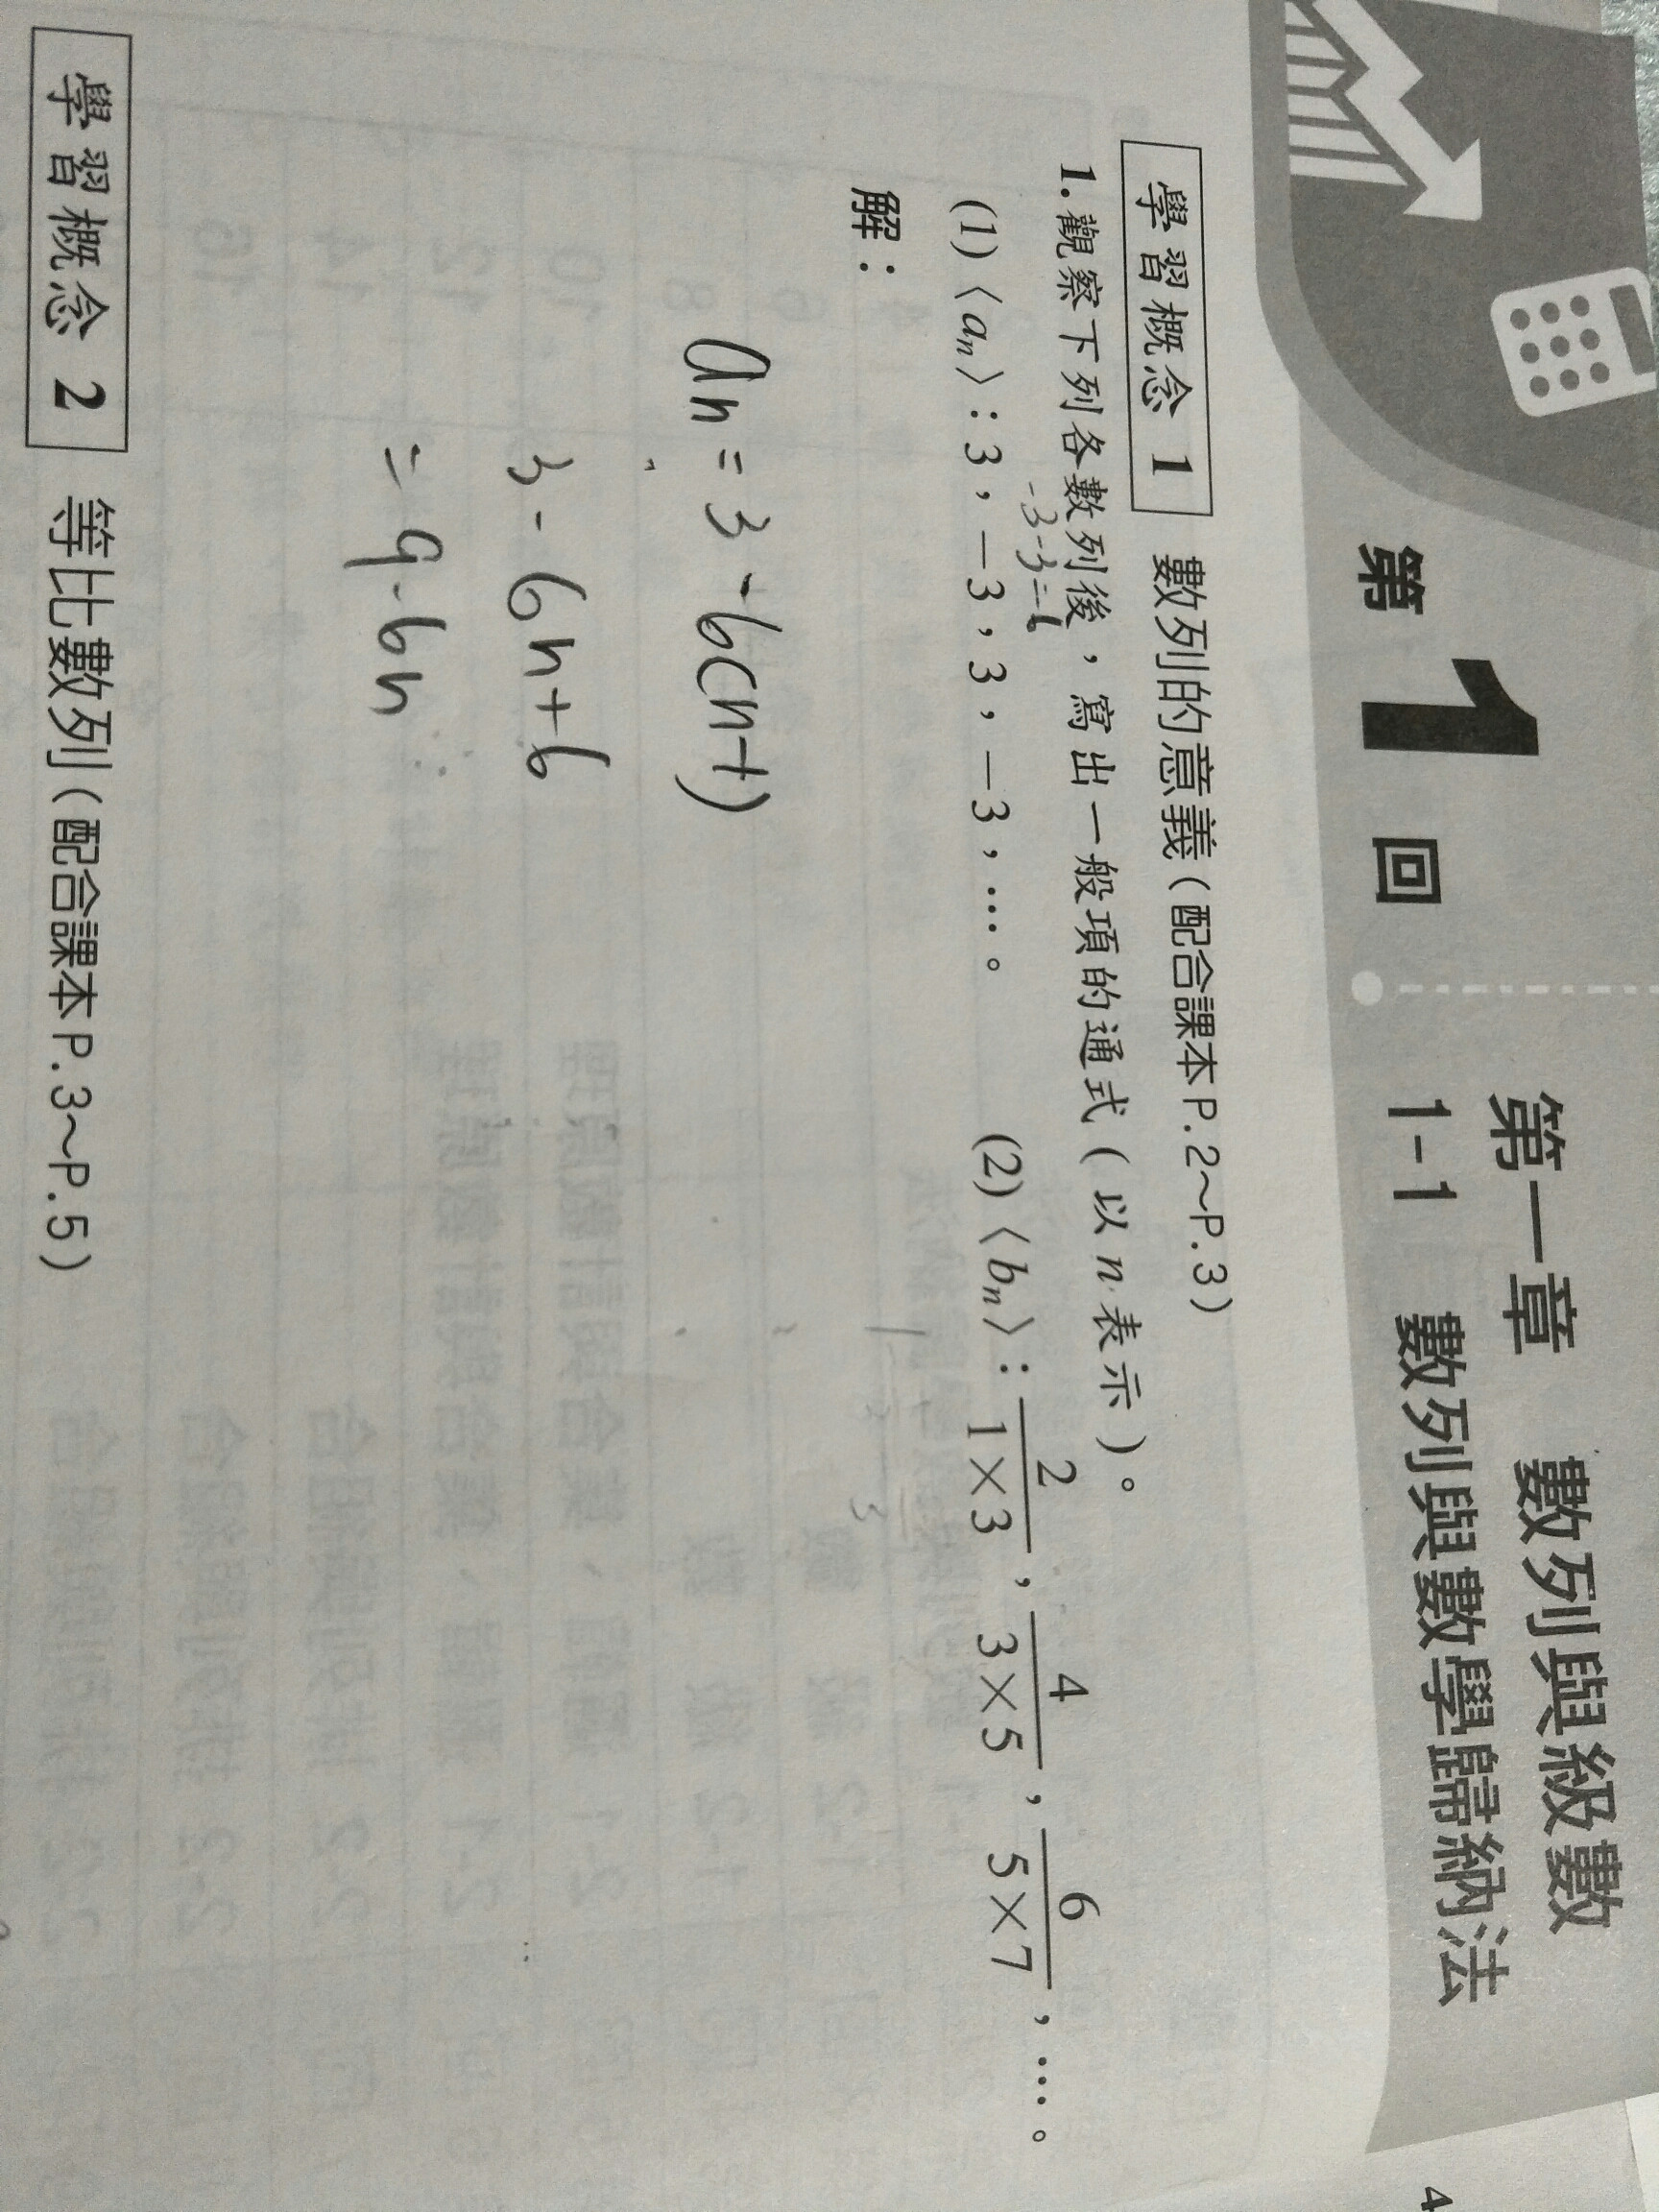 第1回
第一章 數列與級數
1-1 數列與數學歸納法
學習概念 1 數列的意義(配合課本P.2～P.3)
1.觀察下列各數列後，寫出一般項的通式(以n表示)。
-3-3=-6
(1)⟨aₙ⟩：3，－3，3，－3，…。
(2)⟨bₙ⟩：2/(1×3)，4/(3×5)，6/(5×7)，…。
解：
an=3-6(n-1)
3-6n+6
=9-6n
學習概念 2 等比數列(配合課本P.3～P.5)
4